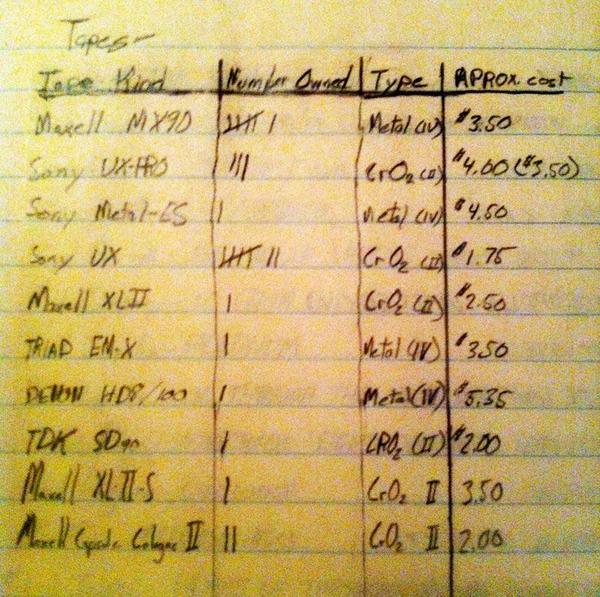 Tapes-
Tape Kind Number Owned Type APROX. cost
Maxell MX90 𝍸 I Metal (IV) $3.50
Sony UX-PRO III CrO2 (II) $4.00 ($3.50)
Sony Metal-ES I Metal (IV) $4.50
Sony UX 𝍸 II CrO2 (II) $1.75
Maxell XLII I CrO2 (II) $2.50
TRIAD EM-X I Metal (IV) $3.50
DENON HD8/100 I Metal (IV) $5.35
TDK SD90 I CRO2 (II) $2.00
Maxell XLII-S I CrO2 II 3.50
Maxell II II CrO2 II 2.00